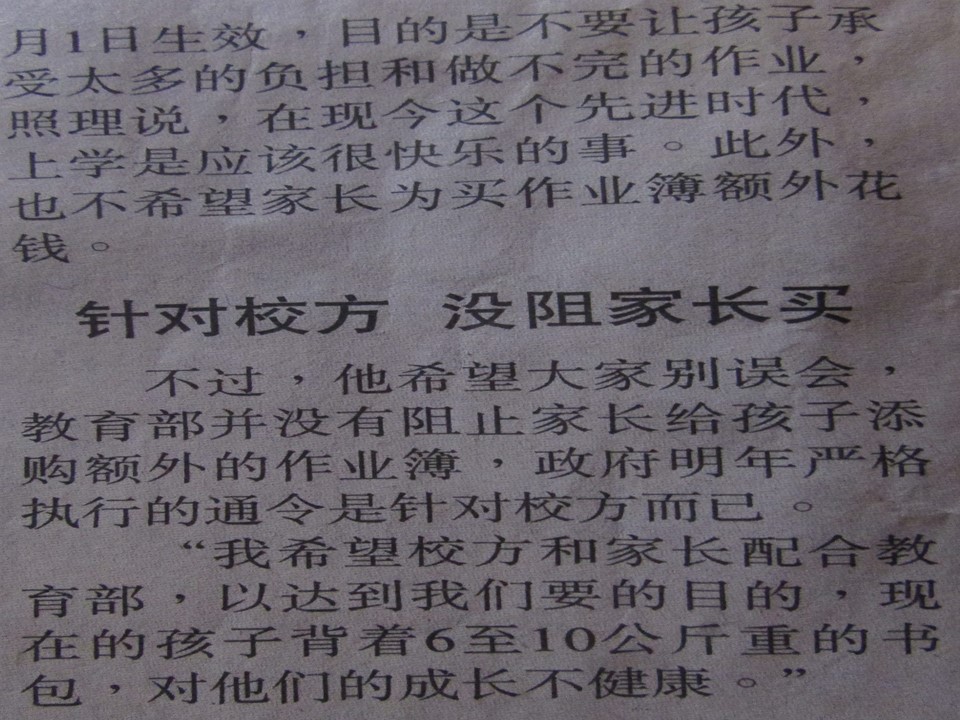 月1日生效，目的是不要让孩子承
受太多的负担和做不完的作业，
照理说，在现今这个先进时代，
上学是应该很快乐的事。此外，
也不希望家长为买作业簿额外花
钱。
针对校方 没阻家长买
不过，他希望大家别误会，
教育部并没有阻止家长给孩子添
购额外的作业簿，政府明年严格
执行的通令是针对校方而已。
“我希望校方和家长配合教
育部，以达到我们要的目的，现
在的孩子背着6至10公斤重的书
包，对他们的成长不健康。”